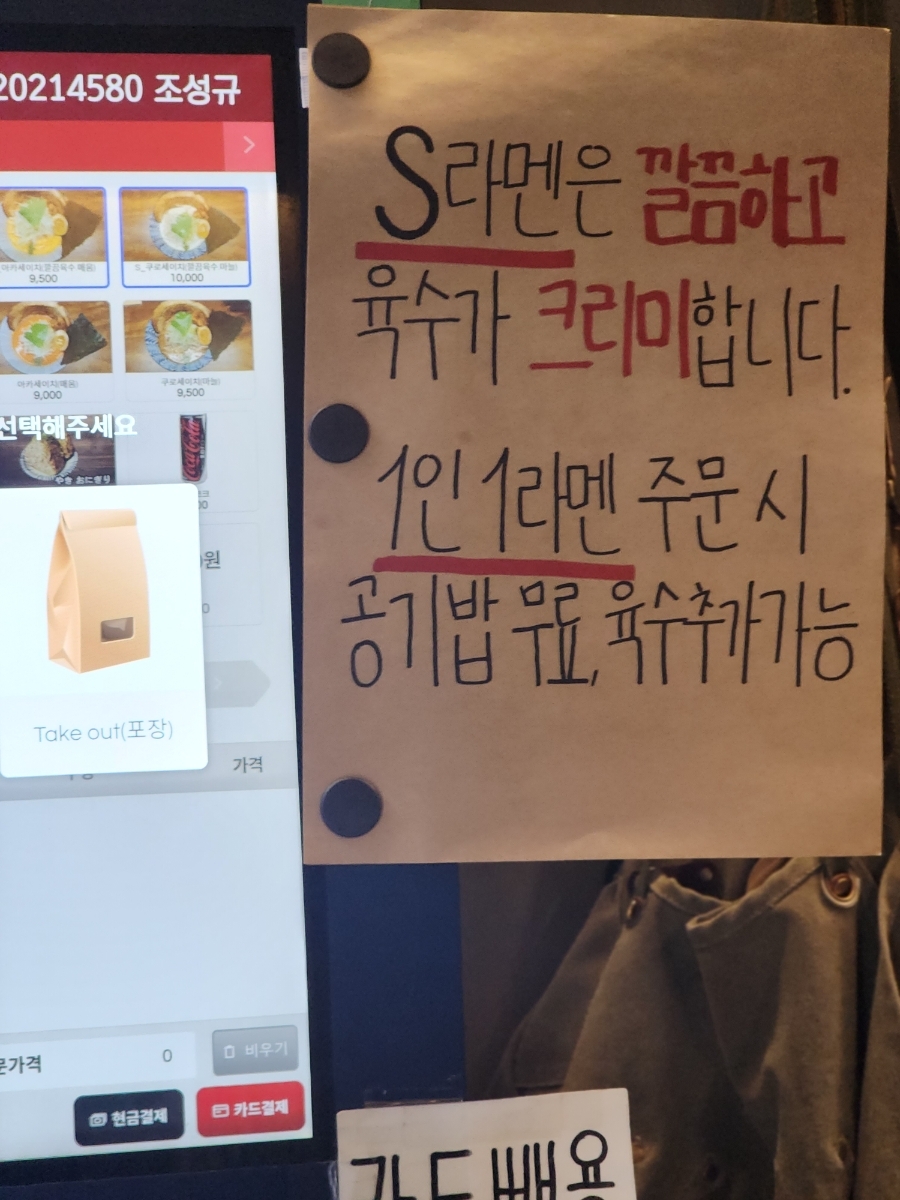 20214580 조성규
아카세이지(깔끔육수.매움)
9,500
S_구로세이지(깔끔육수.마늘)
10,000
아카세이지(매움)
9,000
구로세이지(마늘)
9,500
선택해주세요
Take out(포장)
가격
0
비우기
현금결제
카드결제
S라멘은 깔끔하고
육수가 크리미합니다.
1인 1라멘 주문 시
공기밥 무료, 육수추가가능